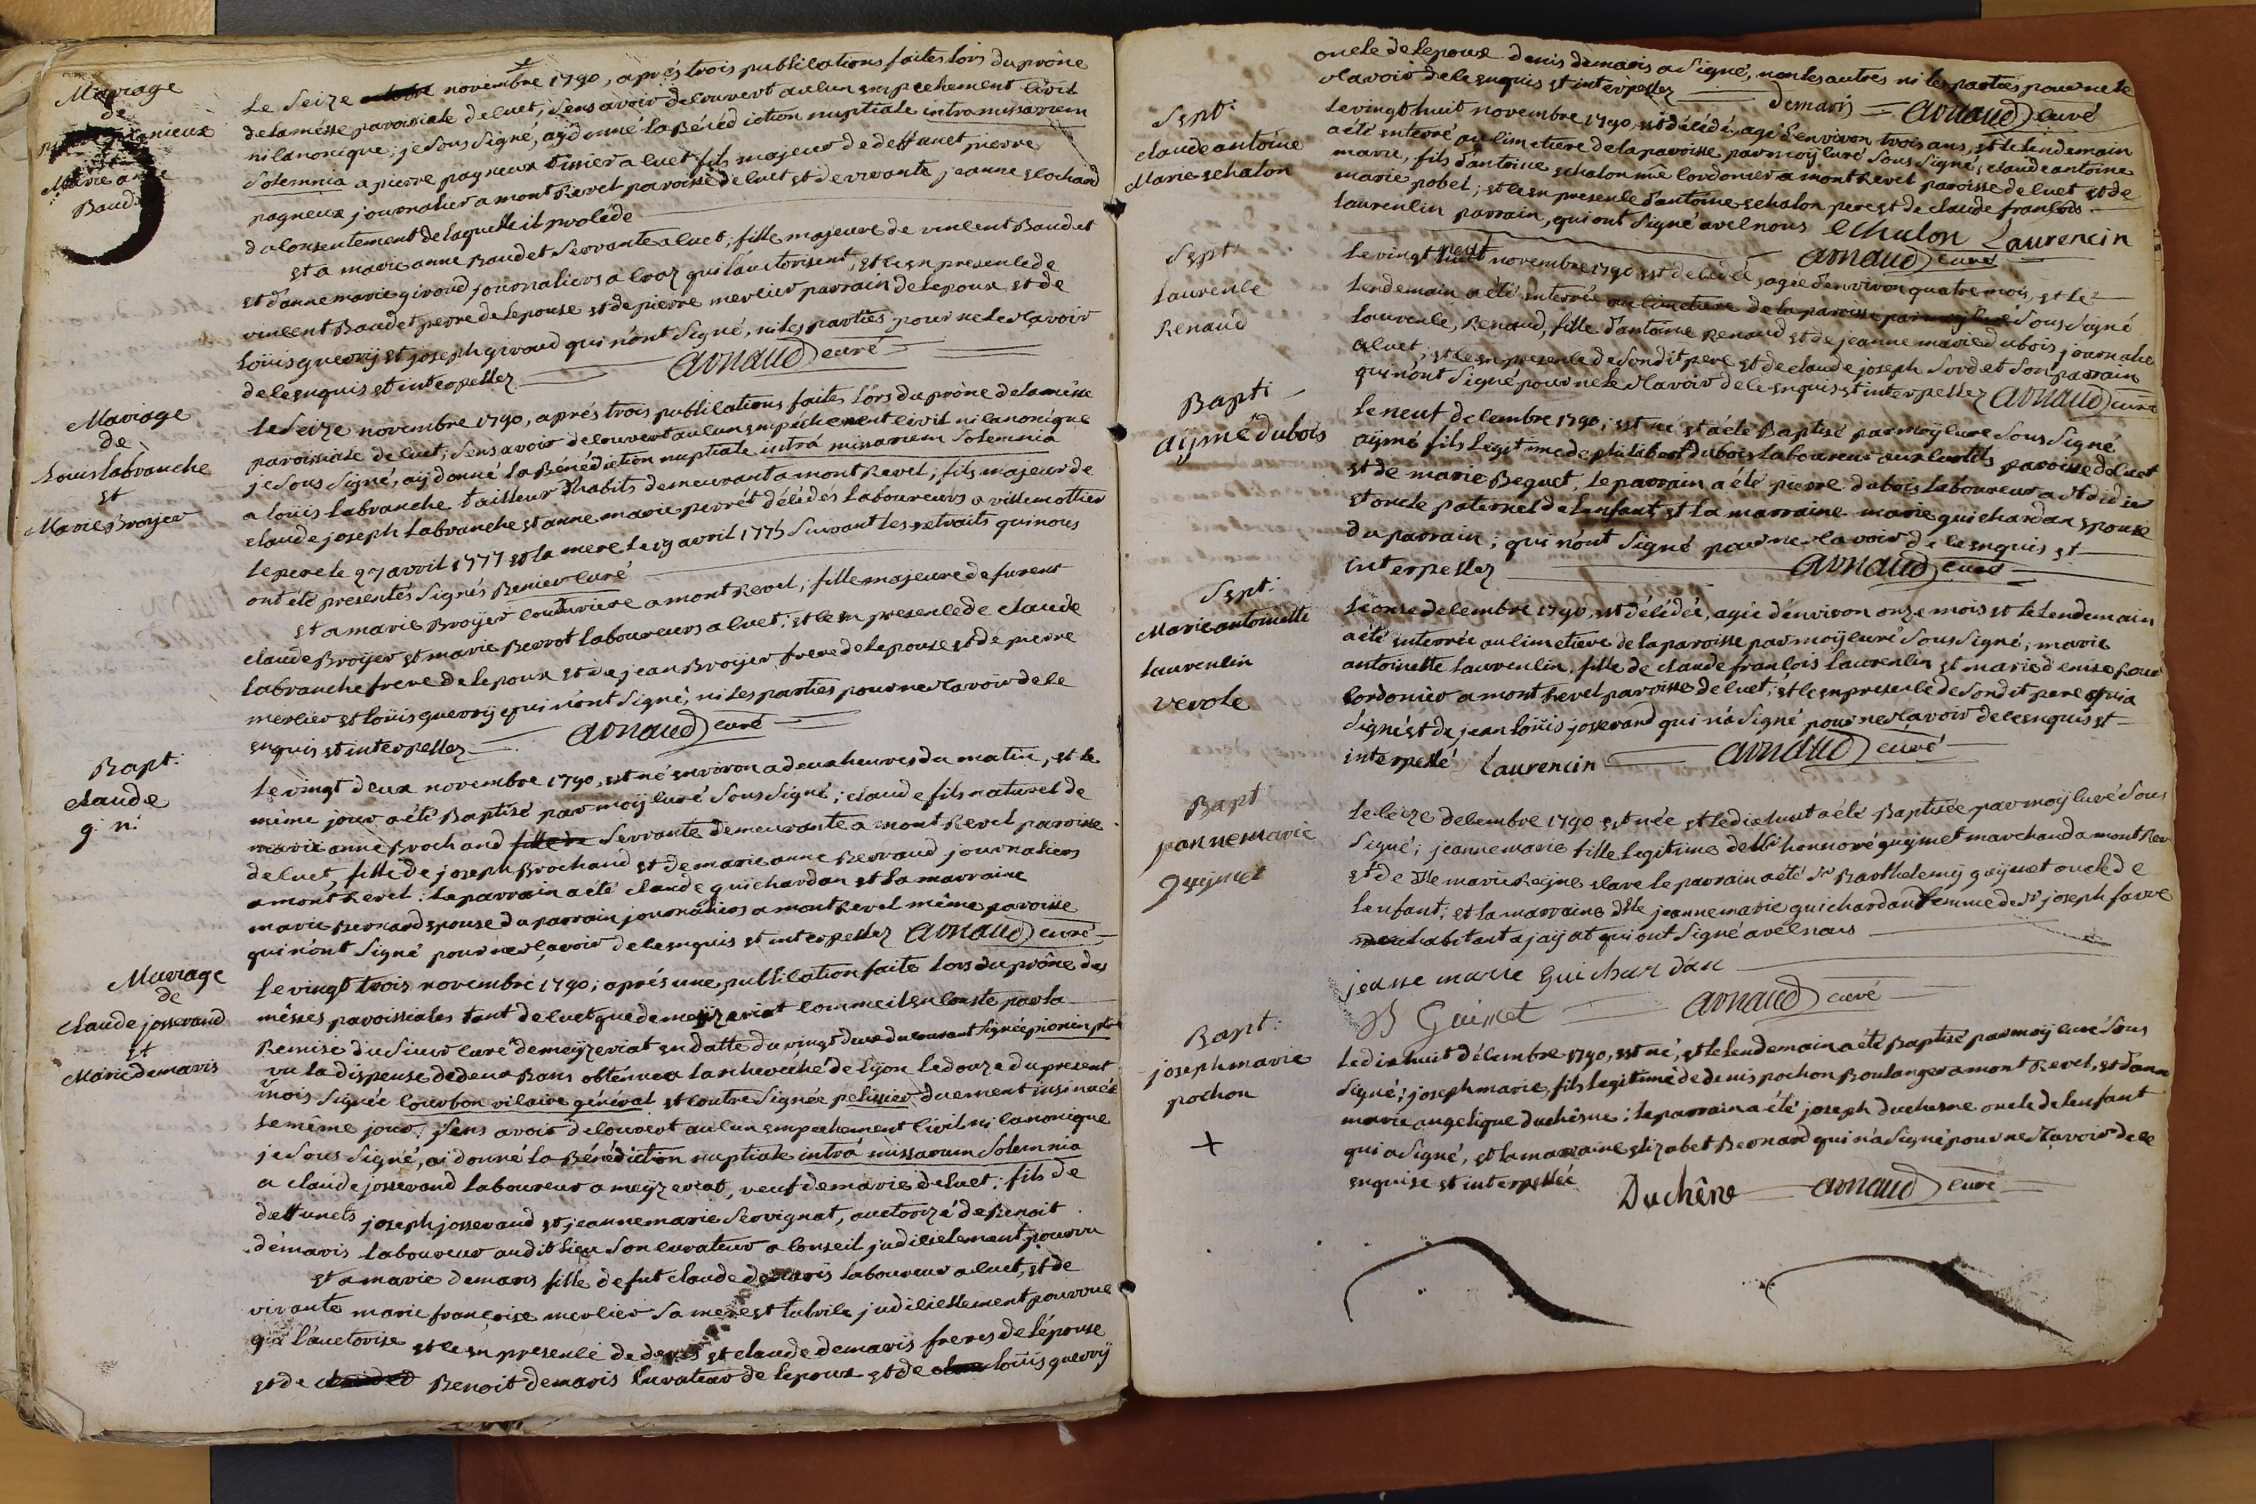 Mariage
de
pierre pagnieux
et
Marie anne
Baudet
Le Seize novembre 1790, aprés trois publications faites lors du prône
de la mésse paroissiale de cuet, sens avoir decouvert aucun empechement civil
ni canonique; je sous signé, aÿ donné la Bénédiction nuptiale intra missarum
solemnia a pierre pagneux tissier a cuet fils majeur de deffunct pierre
pagneux journalier a mont Revel paroisse de cuet et de vivante jeanne
du consentement de laquelle il procéde
et a marie anne Baudet servante a cuet, fille majeure de vincent Baudet
et d'anne marie giroud journaliers a croz qui l'auctorisent, et ce en presence de
vincent Baudet perre de l'epouse et de pierre merlier parrain de l'epoux et de
Loüis guerrÿ et joseph giroud qui n'ont signé, ni les parties pour ne le sçavoir
de ce enquis et interpellez arnaud curé
Mariage
de
Louis labranche
et
Marie Broyer
Le Seize novembre 1790, aprés trois publications faites lors du prône de la messe
paroissiale de cuet, sens avoir decouvert aucun empéchement civil ni canonique
je sous signé, aÿ donné la Bénédiction nuptiale intrá missarum solemnia
a louis labranche tailleur d'habits demeurant a mont Revel, fils majeur de
claude joseph labranche et anne marie perrét décédés laboureurs a villemotier
le pere le 27 avril 1777 et la mere le 19 avril 1775 suivant les extraits qui nous
ont été presentés signés Renier curé
et a marie Broÿer couturiere a mont Revel, fille majeure de furent
claude Broÿer et marie Berrot laboureurs a cuet; et ce en presence de claude
labranche frere de l'epoux et de jean Broÿer frere de l'epouse et de pierre
merlier et loüis guerrÿ qui n'ont signé, ni les parties pour ne sçavoir de ce
enquis et interpellez arnaud curé
Bapt:
claude
g. n.
Le vingt deux novembre 1790, est né environ a deux heures du matin, et le
même jour a été Baptisé par moÿ curé sous signé; claude fils naturel de
marie anne Brochand servante demeurante a mont Revel paroisse
de cuet, fille de joseph Brochand et de marie anne Berraud journaliers
a mont Revel: le parrain a été claude guichardan et la marraine
marie Bernard epouse du parrain journaliers a mont Revel même paroisse
qui n'ont signé pour ne sçavoir de ce enquis et interpellez arnaud curé
Mariage
de
claude josserand
et
Marie demaris
Le vingt trois novembre 1790; aprés une publication faite lors du prône des
mésses paroissiales tant de cuet que de meÿzeriat comme il en conste par la
Remise du sieur curé de meÿzeriat en datte du vingt deux du courant signée pionin ptre
vu la dispense de deux Bans obtenue a l'archevêché de Lÿon le douze du present
mois signée courbon vicaire général et contre signée pelissier duement insinuée
le même jour. sens avoir decouvert aucun empechement civil ni canonique
je sous signé, ai donné la Bénédiction nuptiale intrá missarum solemnia
a claude josserand laboureur a meÿzeriat, veuf de marie decuet, fils de
deffuncts joseph josserand et jeanne marie servignat, auctorizé de Benoit
démaris laboureur au dit lieu son curateur a conseil judicielement pourvu
et a marie demaris fille de fut claude demaris laboureur a cuet, et de
vivante marie françoise merlier sa mere et tutrice judiciellement pourvue
qui l'auctorise et ce en presence de denis et claude demaris freres de l'épouse
et de Benoit demaris curateur de l'epoux et de loüis guerrÿ
oncle de l'epoux denis demaris a signé, non les autres ni les parties pour ne le
sçavoir de ce enquis et interpellez demaris arnaud curé
Sept:
claude antoine
Marie echalon
Le vingt huit novembre 1790 est décédé, agé d'environ trois ans, et le lendemain
a été enterré au cimetiere de la paroisse par moÿ curé sous signé, claude antoine
marie, fils d'antoine echalon mtre cordonier a mont Revel paroisse de cuet et de
marie pobel; et ce en presence d'antoine echalon pere et de claude françois
laurencin parrain, qui ont signé avec nous Echalon Laurencin
arnaud curé
Sept:
Laurence
Renaud
Le vingt neuf novembre 1790 est decedée, agée d'environ quatre mois, et le
lendemain a été enterrée au cimetiere de la paroisse par moÿ curé sous signé
Laurence, Renaud, fille d'antoine Renaud et de jeanne marie dubois journaliers
a cuet; et ce en presence de son dit pere et de claude joseph sordet son parrain
qui n'ont signé pour ne le sçavoir de ce enquis et interpellez arnaud curé
Bapti
aÿmé dubois
Le neuf decembre 1790; est né et a été Baptisé par moÿ curé sous signé
aÿmé fils legitime de philibert dubois laboureur aux paroisse de cuet
et de marie Beguet, le parrain a été pierre dubois laboureur a st didier
et oncle paternel de l'enfant et la marraine marie guichardan epouse
du parrain; qui n'ont signé pour ne sçavoir de ce enquis et
interpellez arnaud curé
Sept:
Marie antoinette
laurencin
verole
Le onse decembre 1790, est décédée, agée d'environ onze mois et le lendemain
a été enterrée au cimetiere de la paroisse par moÿ curé sous signé; marie
antoinette laurencin, fille de claude françois laurencin et marie denise
cordonier a mont Revel paroisse de cuet; et ce en presence de son dit pere qui a
signé et de jean loüis josserand qui n'a signé pour ne sçavoir de ce enquis et
interpellé Laurencin arnaud curé
Bapt
jeanne marie
guÿmet
Le seize decembre 1790 est née et le dix huit a été Baptisée par moÿ curé sous
signé; jeanne marie fille legitime de sr honnoré guÿmet marchand a mont Rev
et de Dlle marie Reÿne clare le parrain a été Sr Barthelemÿ guÿmet oncle de
l'enfant; et la marraine dlle jeanne marie guichardan femme de sr joseph favre
habitant a jaÿat qui ont signé avec nous
jeanne marie Guichardan
B Guimet arnaud curé
Bapt:
joseph marie
pochon
+
Le dix huit décembre 1790, est né, et le lendemain a été Baptisé par moÿ curé sous
signé; joseph marie, fils legitime de denis pochon Boulanger a mont Revel, et d'anne
marie angelique duchêsne: le parrain a été joseph duchesne oncle de l'enfant
qui a signé, et la marraine elizabet Bernard qui n'a signé pour ne sçavoir de ce
enquise et interpellée Duchêne arnaud curé